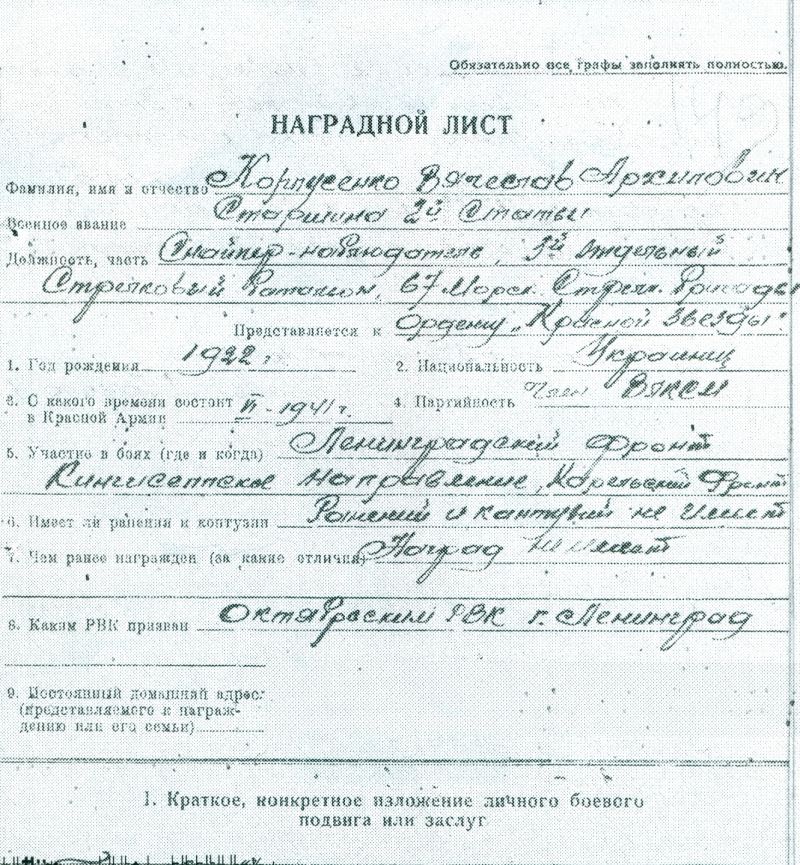 Обязательно все графы заполнять полностью.
НАГРАДНОЙ ЛИСТ
Фамилия, имя и отчество Корпусенко Вячеслав Архипович
Военное звание Старшина 2й Статьи
Должность, часть Снайпер-наблюдатель, 3й отдельный
Стрелковый Батальон, 67 Морск. Стрелк. Бригады
Представляется к Ордену „Красной Звезды".
1. Год рождения 1922 г 2. Национальность Украинец
3. С какого времени состоит
в Красной Армии VI-1941 г. 4. Партийность Член ВЛКСМ
5. Участие в боях (где и когда) Ленинградский фронт
Кингисеппское направление, Карельский Фронт
6. Имеет ли ранения и контузии Ранений и кантузий не имеет
7. Чем ранее награжден (за какие отличия) Наград не имеет
8. Каким РВК призван Октябрьским РВК г. Ленинград
9. Постоянный домашний адрес:
(представляемого к награж-
дению или его семьи)
1. Краткое, конкретное изложение личного боевого
подвига или заслуг